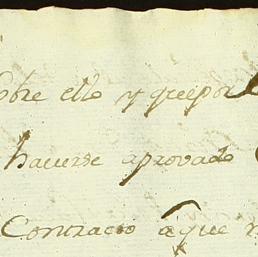 obre ello y que por
haverse aprovado
Contracto aque